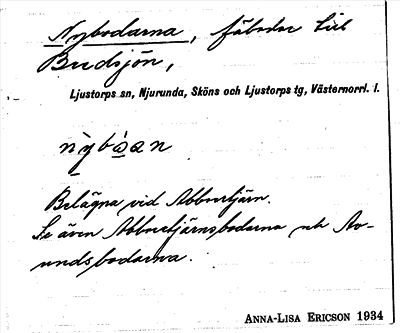 Nybodarna, fäbodar till
Bredsjön,
Ljustorps sn, Njurunda, Sköns och Ljustorps tg, Västernorrl. l.
Belägna vid Abborrtjärn.
Se även Abborrtjärnsbodarna och Av-
undsbodarna.
ANNA-LISA ERICSON 1934